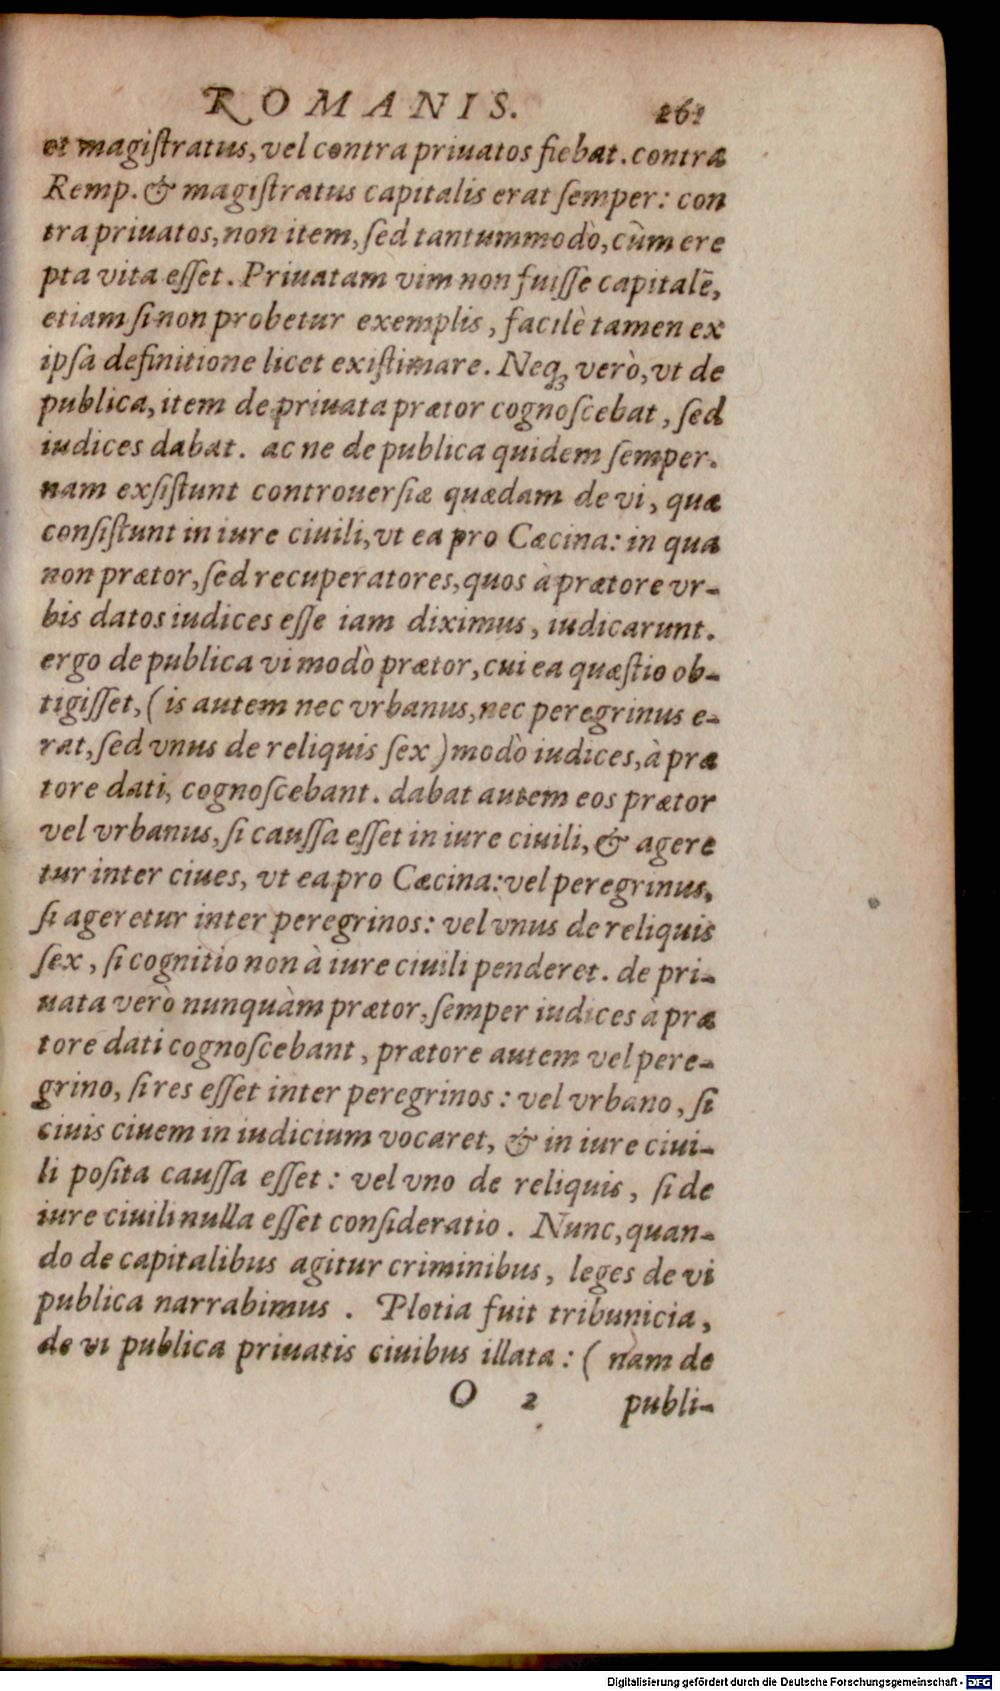 ROMANIS. 261
et magiſtratus, vel contra priuatos fiebat. contra
Remp. & magiſtratus capitalis erat ſemper: con
tra priuatos, non item, ſed tantummodò, cùm ere
pta vita eſſet. Priuatam vim non fuiſſe capitalē,
etiam ſi non probetur exemplis, facilè tamen ex
ipſa definitione licet exiſtimare. Neq; verò, vt de
publica, item de priuata prætor cognoſcebat, ſed
iudices dabat. ac ne de publica quidem ſemper.
nam exſiſtunt controuerſiæ quædam de vi, quæ
conſiſtunt in iure ciuili, vt ea pro Cæcina: in qua
non prætor, ſed recuperatores, quos à prætore vr-
bis datos iudices eſſe iam diximus, iudicarunt.
ergo de publica vi modò prætor, cui ea quæſtio ob-
tigiſſet, (is autem nec vrbanus, nec peregrinus e-
rat, ſed vnus de reliquis ſex) modò iudices, à præ
tore dati, cognoſcebant. dabat autem eos prætor
vel vrbanus, ſi cauſſa eſſet in iure ciuili, & agere
tur inter ciues, vt ea pro Cæcina: vel peregrinus,
ſi ageretur inter peregrinos: vel vnus de reliquis
ſex, ſi cognitio non à iure ciuili penderet. de pri-
uata verò nunquàm prætor, ſemper iudices à præ
tore dati cognoſcebant, prætore autem vel pere-
grino, ſi res eſſet inter peregrinos: vel vrbano, ſi
ciuis ciuem in iudicium vocaret, & in iure ciui-
li poſita cauſſa eſſet: vel vno de reliquis, ſi de
iure ciuili nulla eſſet conſideratio. Nunc, quan-
do de capitalibus agitur criminibus, leges de vi
publica narrabimus. Plotia fuit tribunicia,
de vi publica priuatis ciuibus illata: (nam de
O 2 publi-
Digitalisierung gefördert durch die Deutsche Forschungsgemeinschaft - DFG